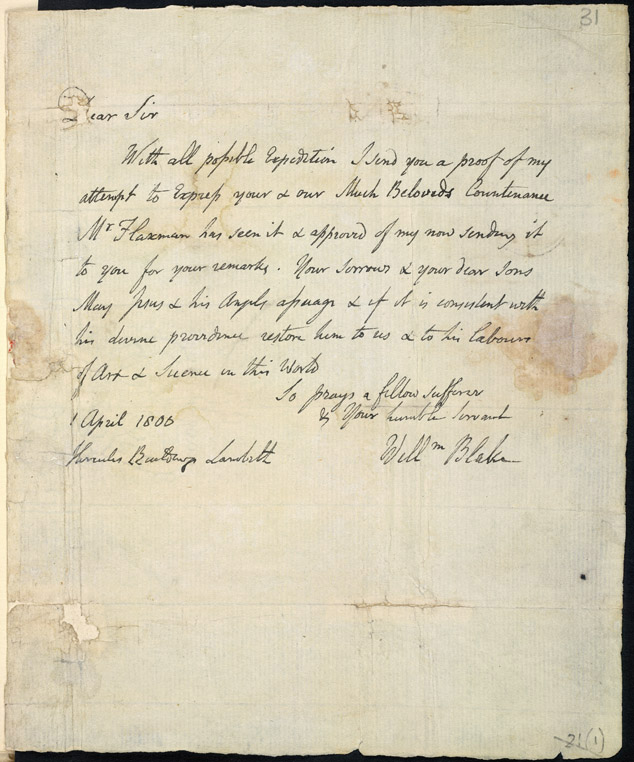 31
Dear Sir
With all possible Expedition I send you a proof of my
attempt to Express your & our Much Beloveds Countenance
Mr Flaxman has seen it & approved of my now sending it
to you for your remarks. Your Sorrows & your dear Sons
May Jesus & his Angels assuage & if it is consistent with
his divine providence restore him to us & to his labours
of Art & Science in this World
So prays a fellow sufferer
& Your humble Servant
Willm Blake
1 April 1800
Hercules Buildings Lambeth
21(1)